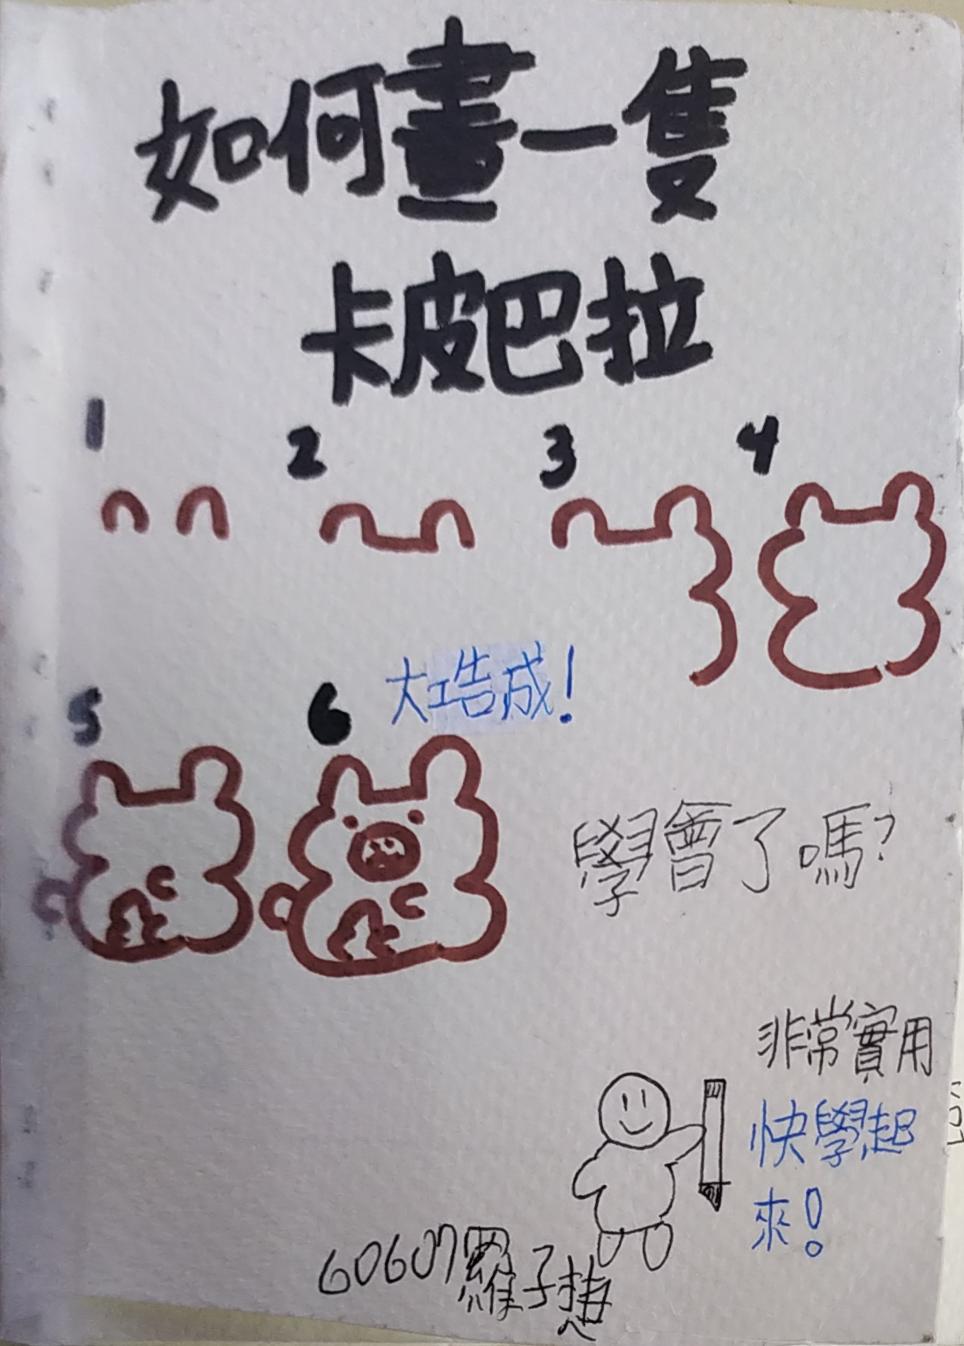 如何畫一隻
卡皮巴拉
1
2
3
4
5
6
大功告成!
學會了嗎?
非常實用
快學起
來!
60607羅子捷